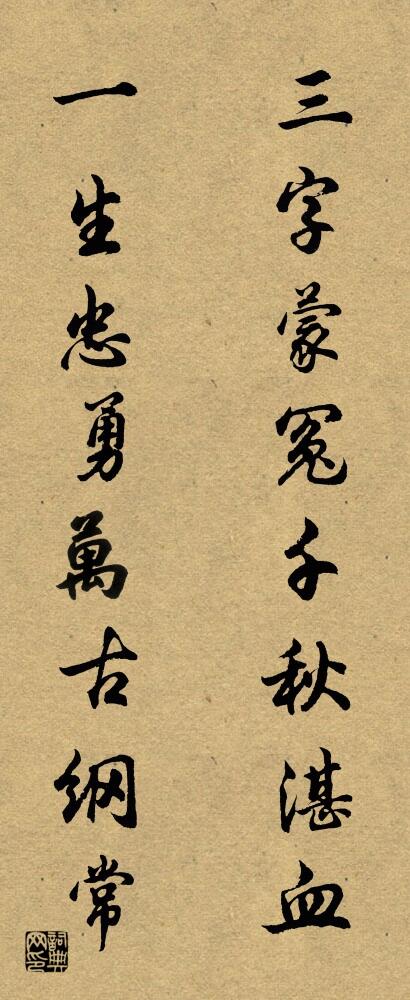 三字蒙冤千秋湛血
一生忠勇萬古纲常